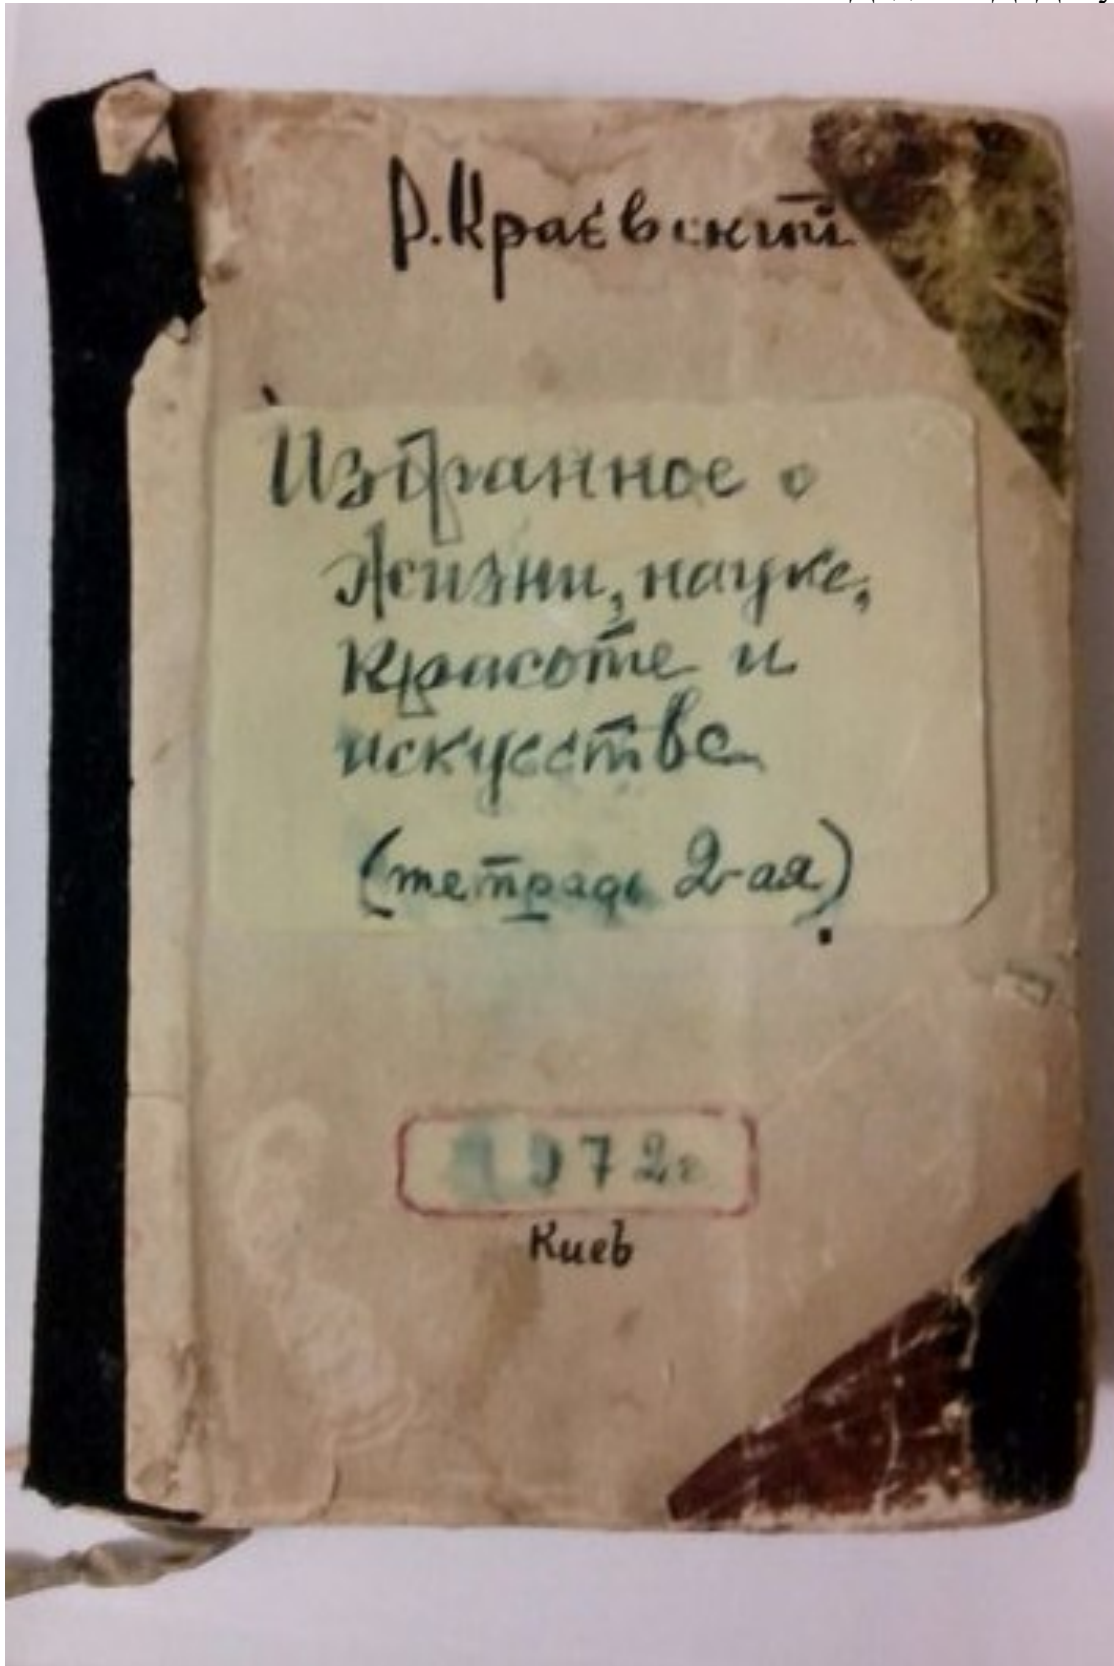 Р. Краевский
Избранное о
жизни, науке,
красоте и
искусстве
(тетрадь 2-ая)
1972г
Киев